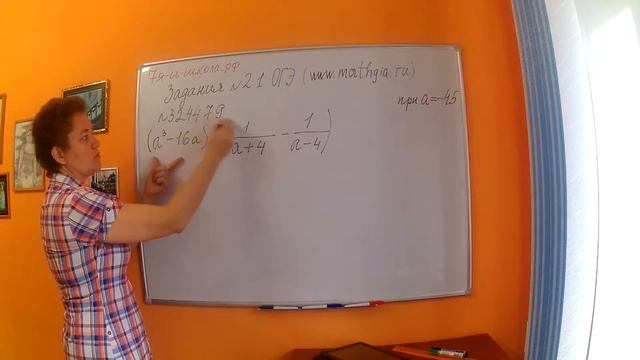 7я-и-школа.рф
Задания №21 ОГЭ (www.mathgia.ru)
№324479
при a=-45
(a³-16a) 1/(a+4) - 1/(a-4))